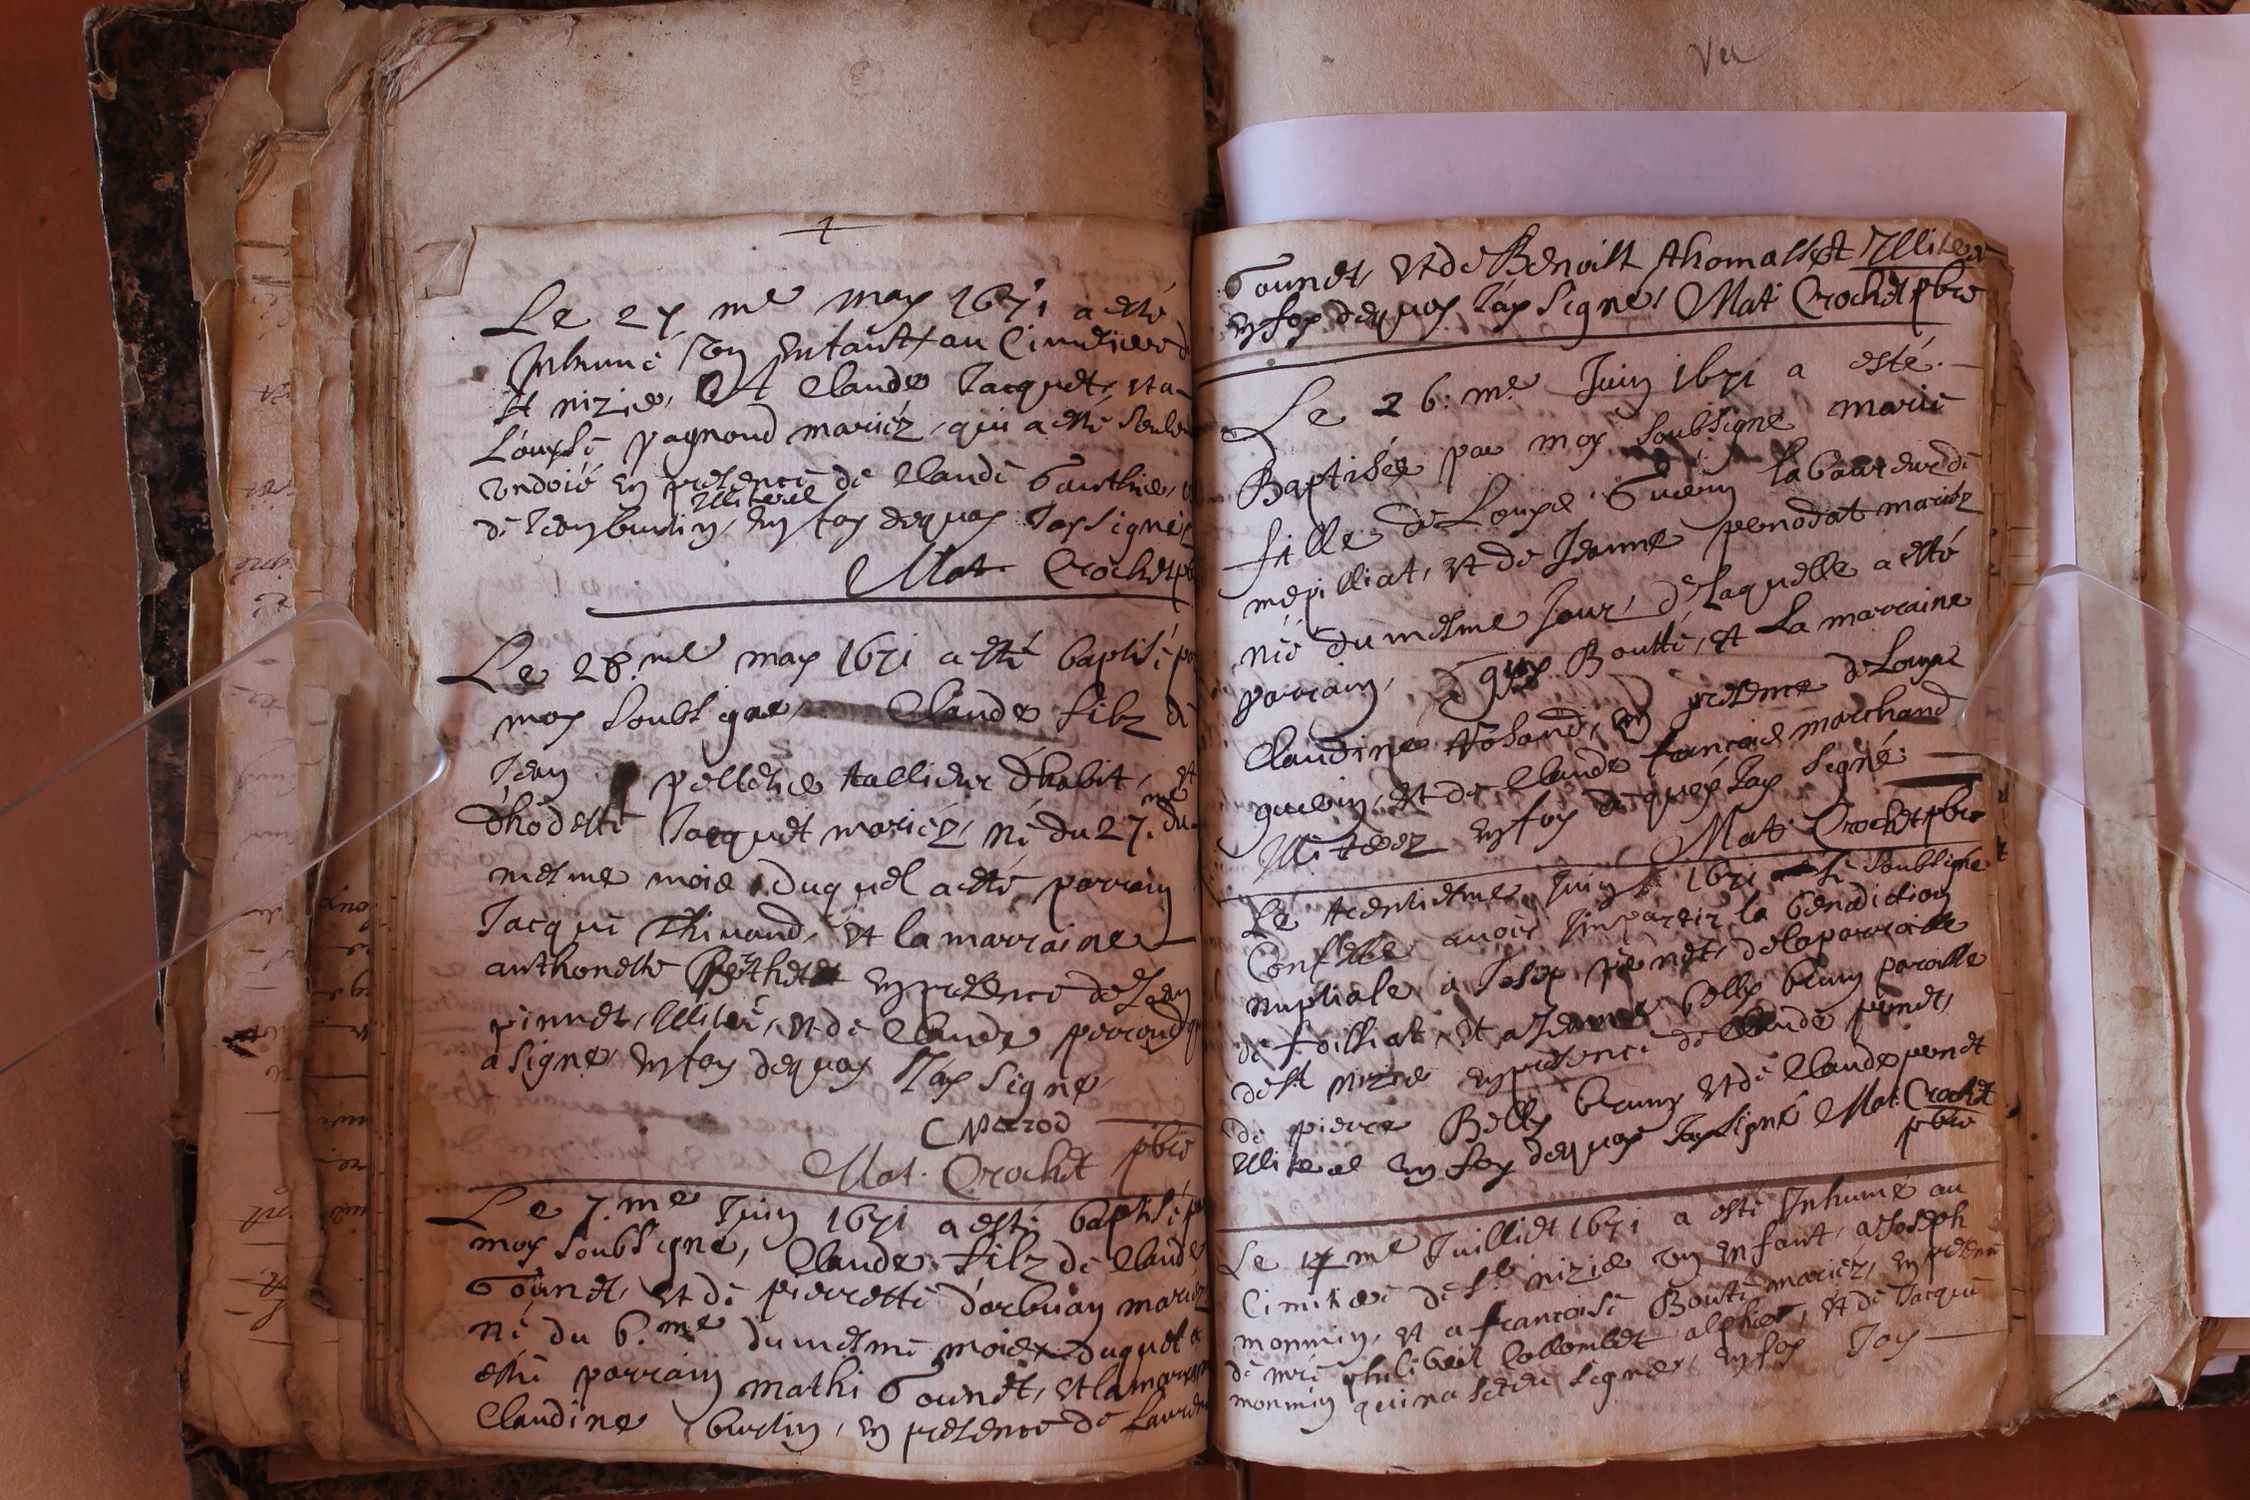 Le 27 me may 1671 a esté
Inhumé un enfant au Cimetiere d
St nizie, a Claude Jacquet, et a
Louyse pagnoud mariéz, qui a esté seule
ondoié en presence de Claude Gauthie,
illiteré
de Jean burtin, en foy dequoy Jay signé
Mat Crochet pb
Le 28.me may 1671 a esté baptisé par
moy soubsigne, Claude filz de
Jean pelletie tallieur dhabit, et
dhodette Jacquet mariéz, né du 27.me du
mesme mois, duquel a esté parrain
Jacque Thivaud, et la marraine
anthonette en presence de Jean
pinnet, illiteré, et de Claude perroud q
a signe, en foy dequoy Jay signe
C perrod
Mat. Crochet pbre
Le 7.me Juin 1671 a esté baptisé p
moy soubsigné, Claude filz de Claude
Gounet, et de pierrette darbuan mariéz
né du 6.me du mesme mois duquel a
esté parrain mathi Gounet, et la marrain
Claudine burtin, en presence de Lauren
Vu
Gounet, et de Benoist thomasset Illiterez
en foy dequoy Jay signe, Mat Crochet pbre
Le 26.me Juin 1671 a esté
Baptisée par moy soubsigne marie
fille de Louyse Guerin laboureur de
mepilliat, et de Jeanne penodat mariéz
née du mesme Jour, de laquelle a esté
parrain, Guy Boutte, et La marraine
Claudine, en presence de Louyse
guerin, et de Claude francois marchand
Illiterez en foy dequoy Jay signé.
Mat Crochet pbre
Le trentiesme Juin 1671 Je soubsigné
Confesse avoir Impartir la benediction
nuptiale a Josep penet, de la parroisse
de foissiat, et a Jeanne belly brun paroisse
de St nizie en presence de Claude penet,
de pierre Belly brun, et de Claude penet
Illiteré en foy dequoy Jay signé Mat. Crochet
pbre
Le 14 me Juilliet 1671 a esté Inhumé au
Cimitiere de St nizie un enfant, a Joseph
monmin, et a francoise Boutte mariéz, en presence
de mre philibert Collombet, et de Jacque
monmin qui na sceu signer, en foy Jay